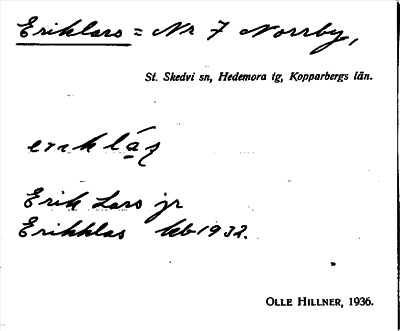 Eriklars = Nr 7 Norrby,
St. Skedvi sn, Hedemora tg, Kopparbergs län.
erikláš
Erik Lars jr
Erikklas kb 1932.
OLLE HILLNER, 1936.